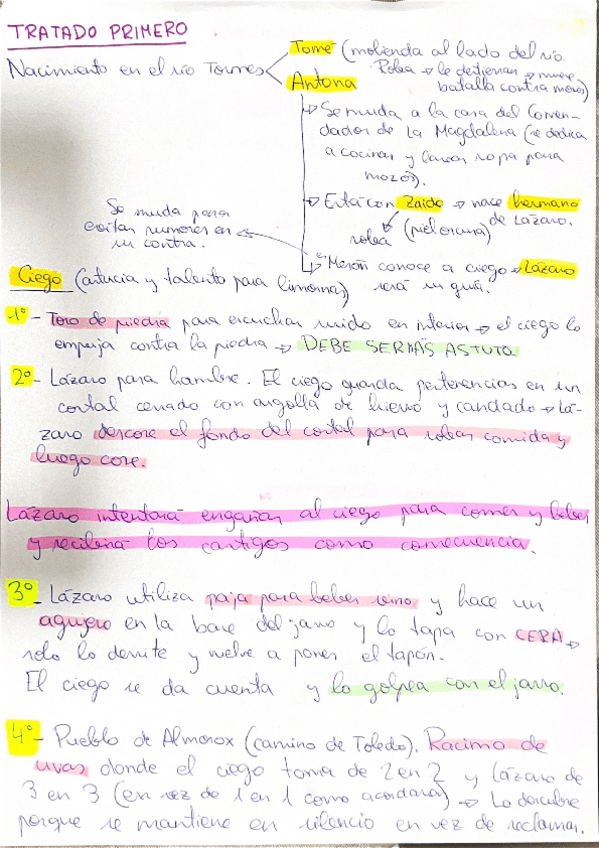 TRATADO PRIMERO
Nacimiento en el río Tormes
Tomé (molienda al lado del río.
Roba → le detienen → muere
batalla contra moros)
Antona
→ Se muda a la casa del Comen-
dador de La Magdalena (se dedica
a cocinar y lavar ropa para
mozos).
→ Está con Zaide → nace hermano
de Lázaro.
roba (piel oscura)
Se muda para
evitar rumores en
su contra.
→ Mesón conoce a ciego → Lázaro
será su guía.
Ciego (astucia y talento para limosnas)
1º - Toro de piedra para escuchar ruido en interior → el ciego lo
empuja contra la piedra → DEBE SER MÁS ASTUTO.
2º - Lázaro pasa hambre. El ciego guarda pertenencias en un
costal cerrado con argolla de hierro y candado → Lá-
zaro descose el fondo del costal para robar comida y
luego cose.
Lázaro intentará engañar al ciego para comer y beber
y recibirá los castigos como consecuencia.
3º - Lázaro utiliza paja para beber vino y hace un
agujero en la base del jarro y lo tapa con CERA →
solo lo derrite y vuelve a poner el tapón.
El ciego se da cuenta y lo golpea con el jarro.
4º - Pueblo de Almorox (camino de Toledo). Racimo de
uvas donde el ciego toma de 2 en 2 y Lázaro de
3 en 3 (en vez de 1 en 1 como acordará) → Lo descubre
porque se mantiene en silencio en vez de reclamar.